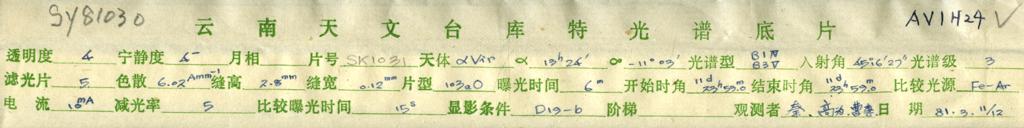 SY81030 云南天文台库特光谱底片 AV1H24 √
透明度 4 宁静度 4⁻ 月相 片号 SK1031 天体 αVir α 13ʰ24′ δ -11°03′ 光谱型 B1Ⅳ B3Ⅴ 入射角 45°6′27″ 光谱级 3
滤光片 5 色散 6.02Amm⁻¹ 缝高 2.8mm 缝宽 0.12mm 片型 103aO 曝光时间 6ᵐ 开始时角 11ᵈ23ʰ53ᵐ.0 结束时角 11ᵈ23ʰ59ᵐ.0 比较光源 Fe-Ar
电流 10mA 减光率 5 比较曝光时间 15ˢ 显影条件 D19-b 阶梯 观测者 秦、 日期 81.3.11/12